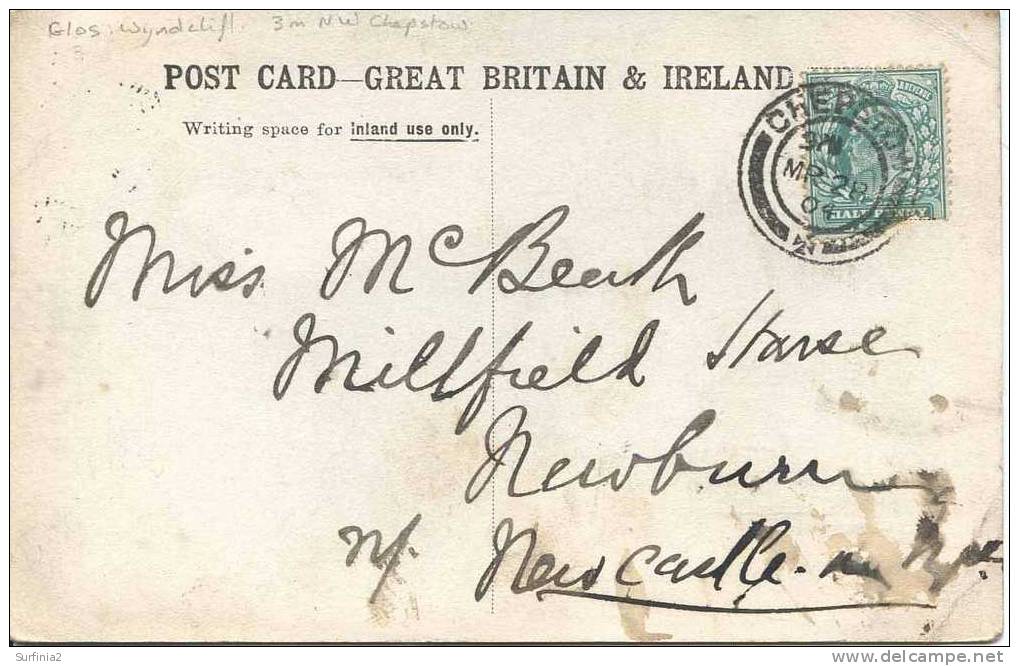 Glos: Wyndclift. 3m NW Chepstow
POST CARD—GREAT BRITAIN & IRELAND
Writing space for inland use only.
CHEPSTOW
MR 28
HALF PENNY
Miss McBeath
Millfield House
Newburn
n/. Newcastle-on Tyne
Surfinia2